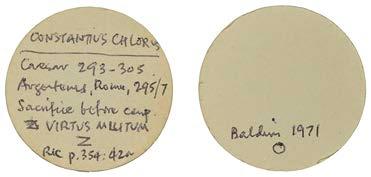 CONSTANTIUS CHLORUS
Caesar 293-305.
Argenteus, Rome, 295/7
Sacrifice before camp
VIRTUS MILITUM
Z
RIC p.354: 42a
Baldwin 1971